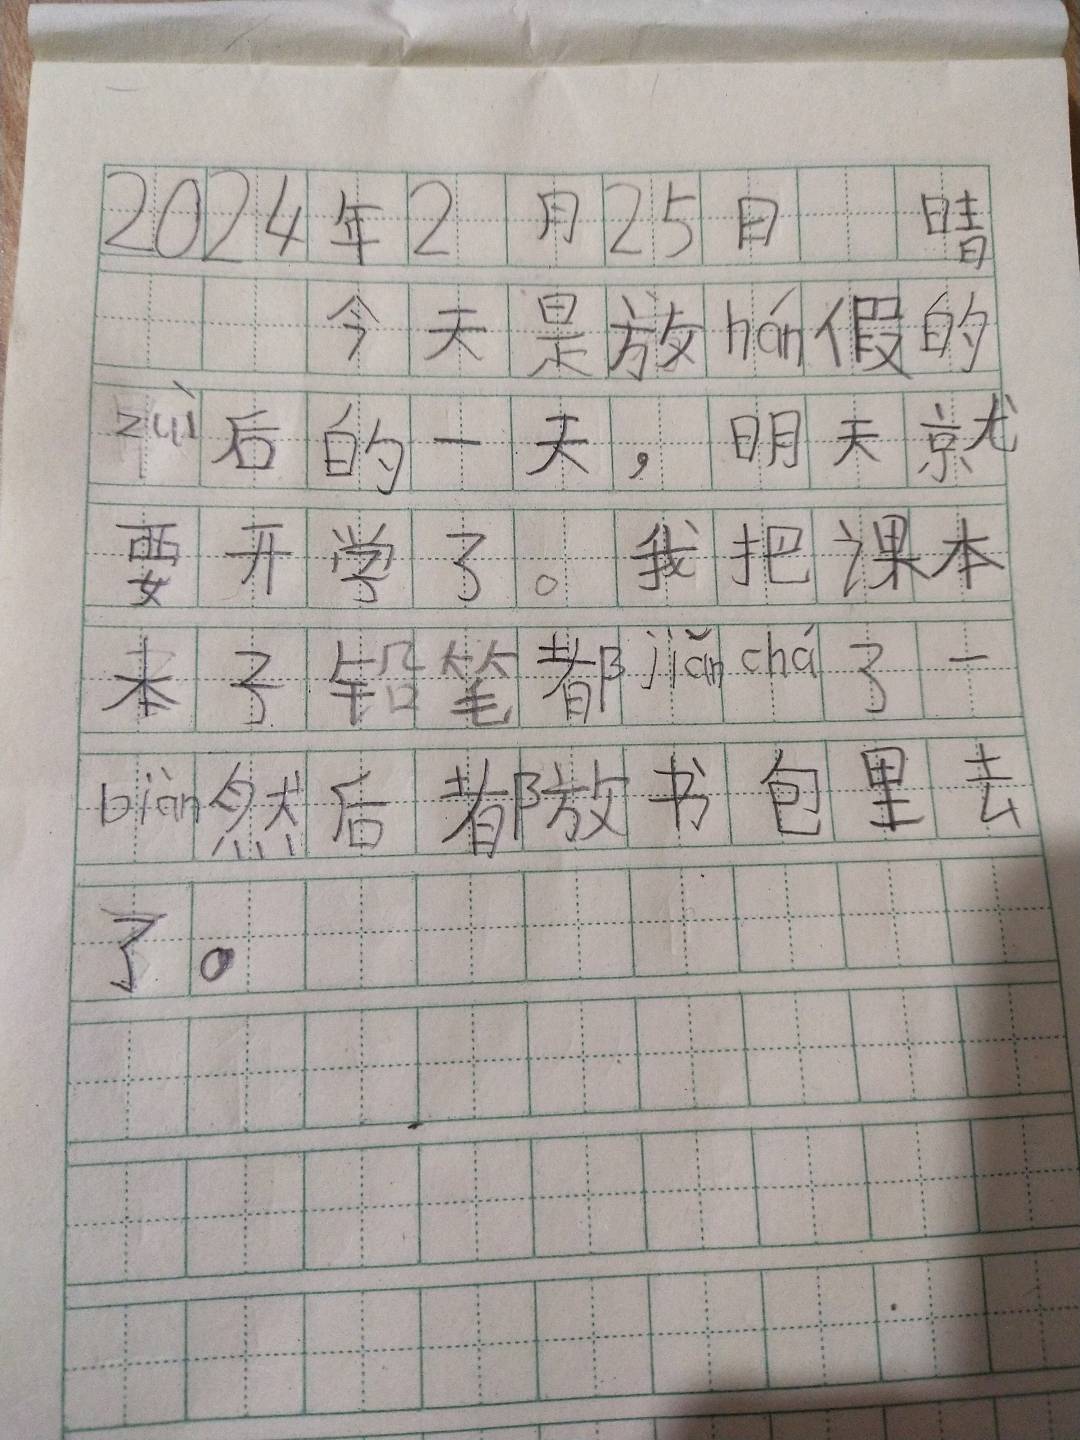 2024年2月25日 晴
今天是放hán假的
zuì后的一天，明天就
要开学了。我把课本
本子铅笔都jiǎn chá了一
biàn然后都放书包里去
了。